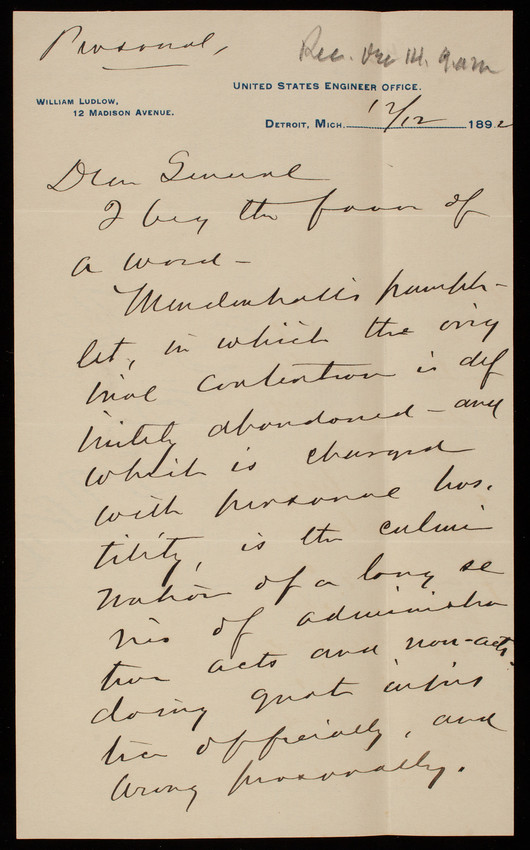 Personal,
Rec. Dec 14. 9 am
UNITED STATES ENGINEER OFFICE.
WILLIAM LUDLOW,
12 MADISON AVENUE.
DETROIT, MICH. 12/12 1892
Dear General
I beg the favor of
a word —
Mendenhall's pamph-
let, in which the orig
inal contention is def
initely abandoned — and
which is charged
with personal hos.
tility, is the culmi
nation of a long se
ries of administra
tive acts and non-acts
doing great injus
tice officially, and
wrong personally.